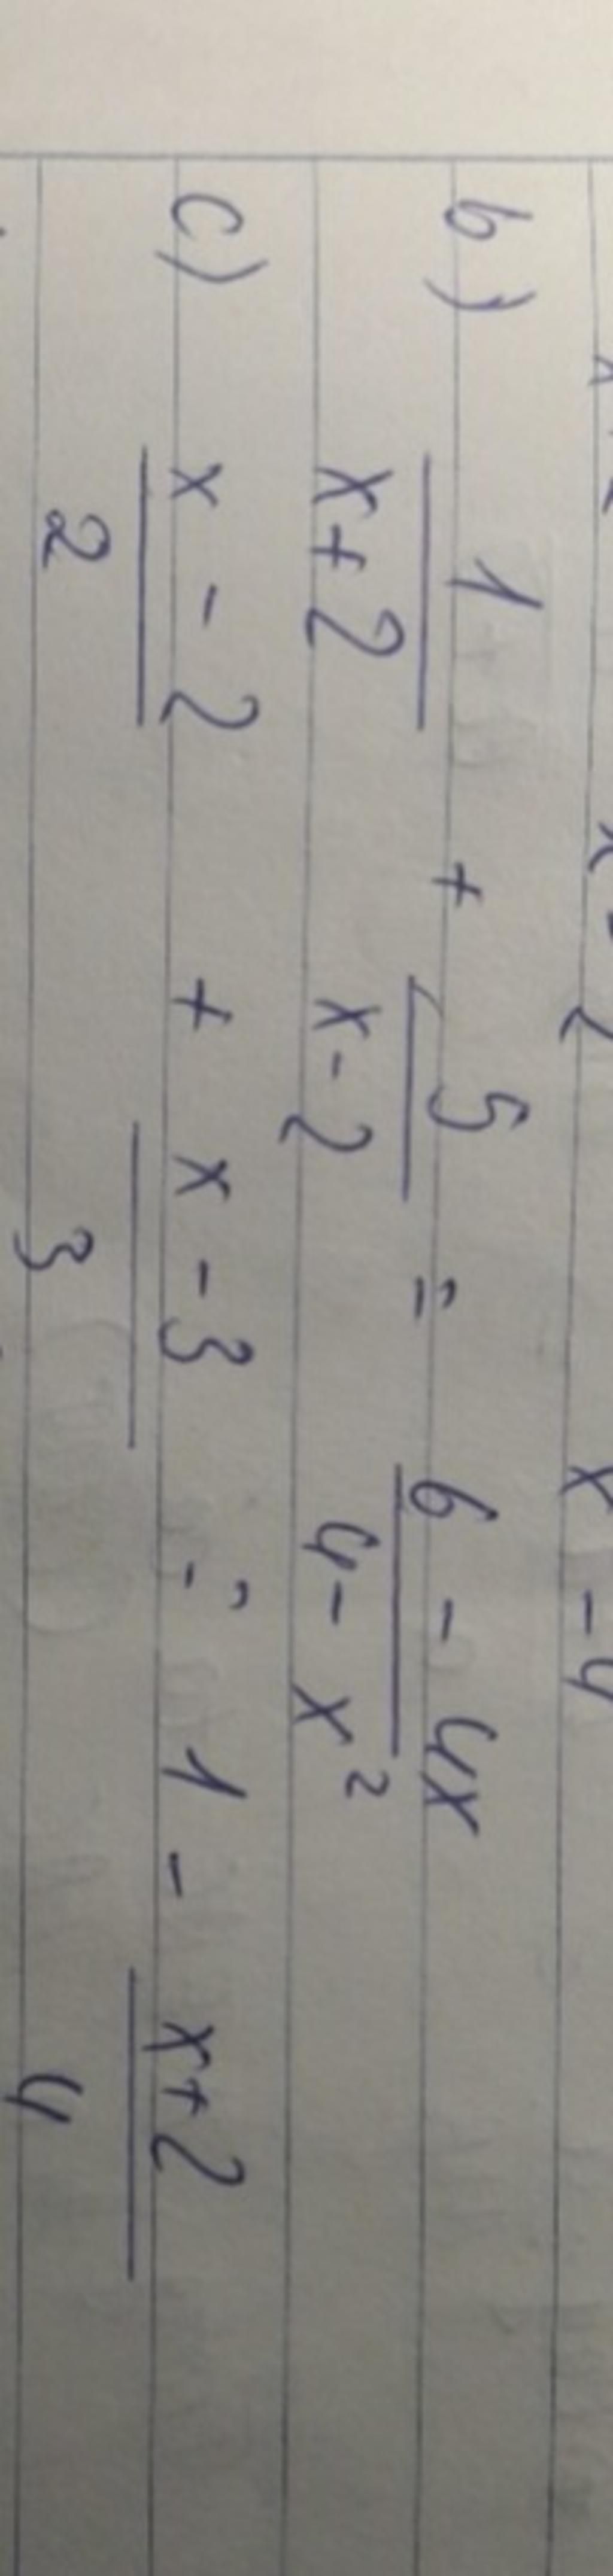 b) 1/(x+2) + 5/(x-2) = (6 - 4x)/(4 - x²)
c) (x - 2)/2 + (x - 3)/3 = 1 - (x+2)/4